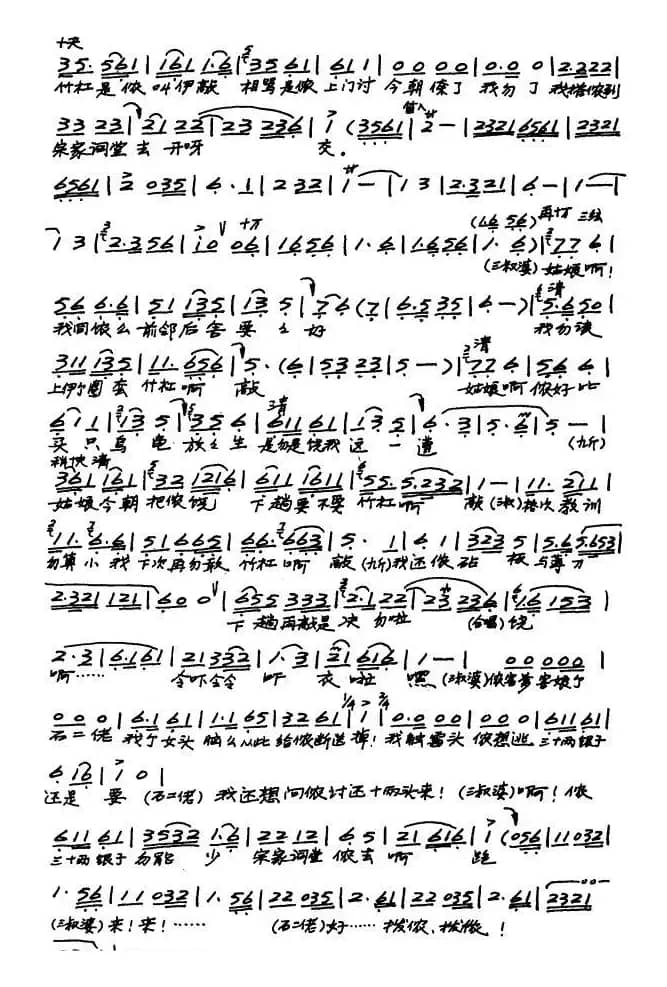 十夫
3 5. 5 6 1 | 1 6 1 1. 6 | 3 5 6 1 | 6 1 1 | 0 0 0 0 | 0. 0 0 | 2. 2 2 2 |
竹杠是侬叫伊敲 相骂是侬上门讨 今朝 了 我勿了 我搭侬到
3 3 2 3 | 2 1 2 2 | 2 3 2 3 6 | 1 ( 3 5 6 1 | 2 — | 2 3 2 1 6 5 6 1 | 2 3 2 1
宋家洞堂去 开呀 交。
6 5 6 1 | 2 0 3 5 | 6 . 1 | 2 3 2 | 1 — | 1 3 | 2. 3 2 1 | 6 — | 1 — |
1 3 | 2. 3 5 6 | 1 0 0 6 | 1 6 5 6 | 1. 6 | 1. 6 5 6 | 1. 6 ) | 7 7 6 |
(三淑婆) 姑娘啊!
5 6 6. 6 | 5 1 1 3 5 | 1 3 5 | 7 6 ( 7 | 6. 5 3 5 | 6 — ) | 5. 6 5 0 |
我问侬么 前邻后舍 要么好 我勿该
3 1 1 1 3 5 | 1 1. 6 5 6 | 5. ( 6 | 5 3 2 3 | 5 — ) | 7 7 6 | 5 6 6 |
竹杠啊 敲 姑娘啊 侬好比
6 1 1 | 1 3 5 | 3 5 6 | 6 1 1 6 1 | 1 3 5 | 6 . 3 | 5 . 6 | 5 — |
买只乌龟 放么生 是勿是饶我这一遭 (九斤)
稍快 清
3 6 1 1 6 1 | 3 2 1 2 1 6 | 6 1 1 1 6 1 1 | 5 5. 5. 2 3 2 | 1 — | 1 1. 2 1 1 |
姑娘今朝把侬饶 下趟要不要竹杠啊 敲 (淑) 搭次教训
1 1. 6. 6 | 5 1 6 6 5 | 6 6. 6 6 3 | 5 . 1 | 6 1 | 3 2 3 5 | 5. 6 5. 6 5 3
勿算小 我下次再勿敢 竹杠啊 敲 (九斤) 我还侬砧板与薄刀
2. 3 2 1 1 2 1 | 6 0 0 | 6 5 5 3 3 3 | 2. 1 2 2 | 2 3 2 3 6 | 1. 6 1 5 3 |
下趟再敲是决勿啦 (合唱) 饶
2. 3 | 6. 1 6 1 | 2 1 3 3 2 | 1. 3 | 2 1 6 1 6 | 1 — | 0 0 0 0 0 |
啊…… 令吓令令 吓衣啦嘿 (三淑婆)
0 0 0 | 6. 1 6 1 | 1. 1 6 5 | 3 2 6 1 | 1 | 0. 0 0 0 | 0 0 0 | 6 1 1 6 1 |
石二佬 我个女头脑么从此给侬断送掉! 我触霉头侬想逃 三十两银子
6 1 6 | 1 0 |
还是要 (石二佬) 我还想问侬讨还十两头来! (三淑婆) 啊! 侬
6 1 1 6 1 | 3 5 3 2 1. 6 | 2 2 1 2 | 6 5 | 2 1 6 1 6 | 1 ( 0 5 6 | 1 1 0 3 2 |
三十两银子勿能少 宋家洞堂侬去啊 跑
1. 5 6 | 1 1 0 3 2 | 1. 5 6 | 2 2 0 3 5 | 2. 6 1 | 2 2 0 3 5 | 2. 6 1 | 2 3 2 1
(三淑婆) 来! 来! …… (石二佬) 好…… 拨侬、拨侬!